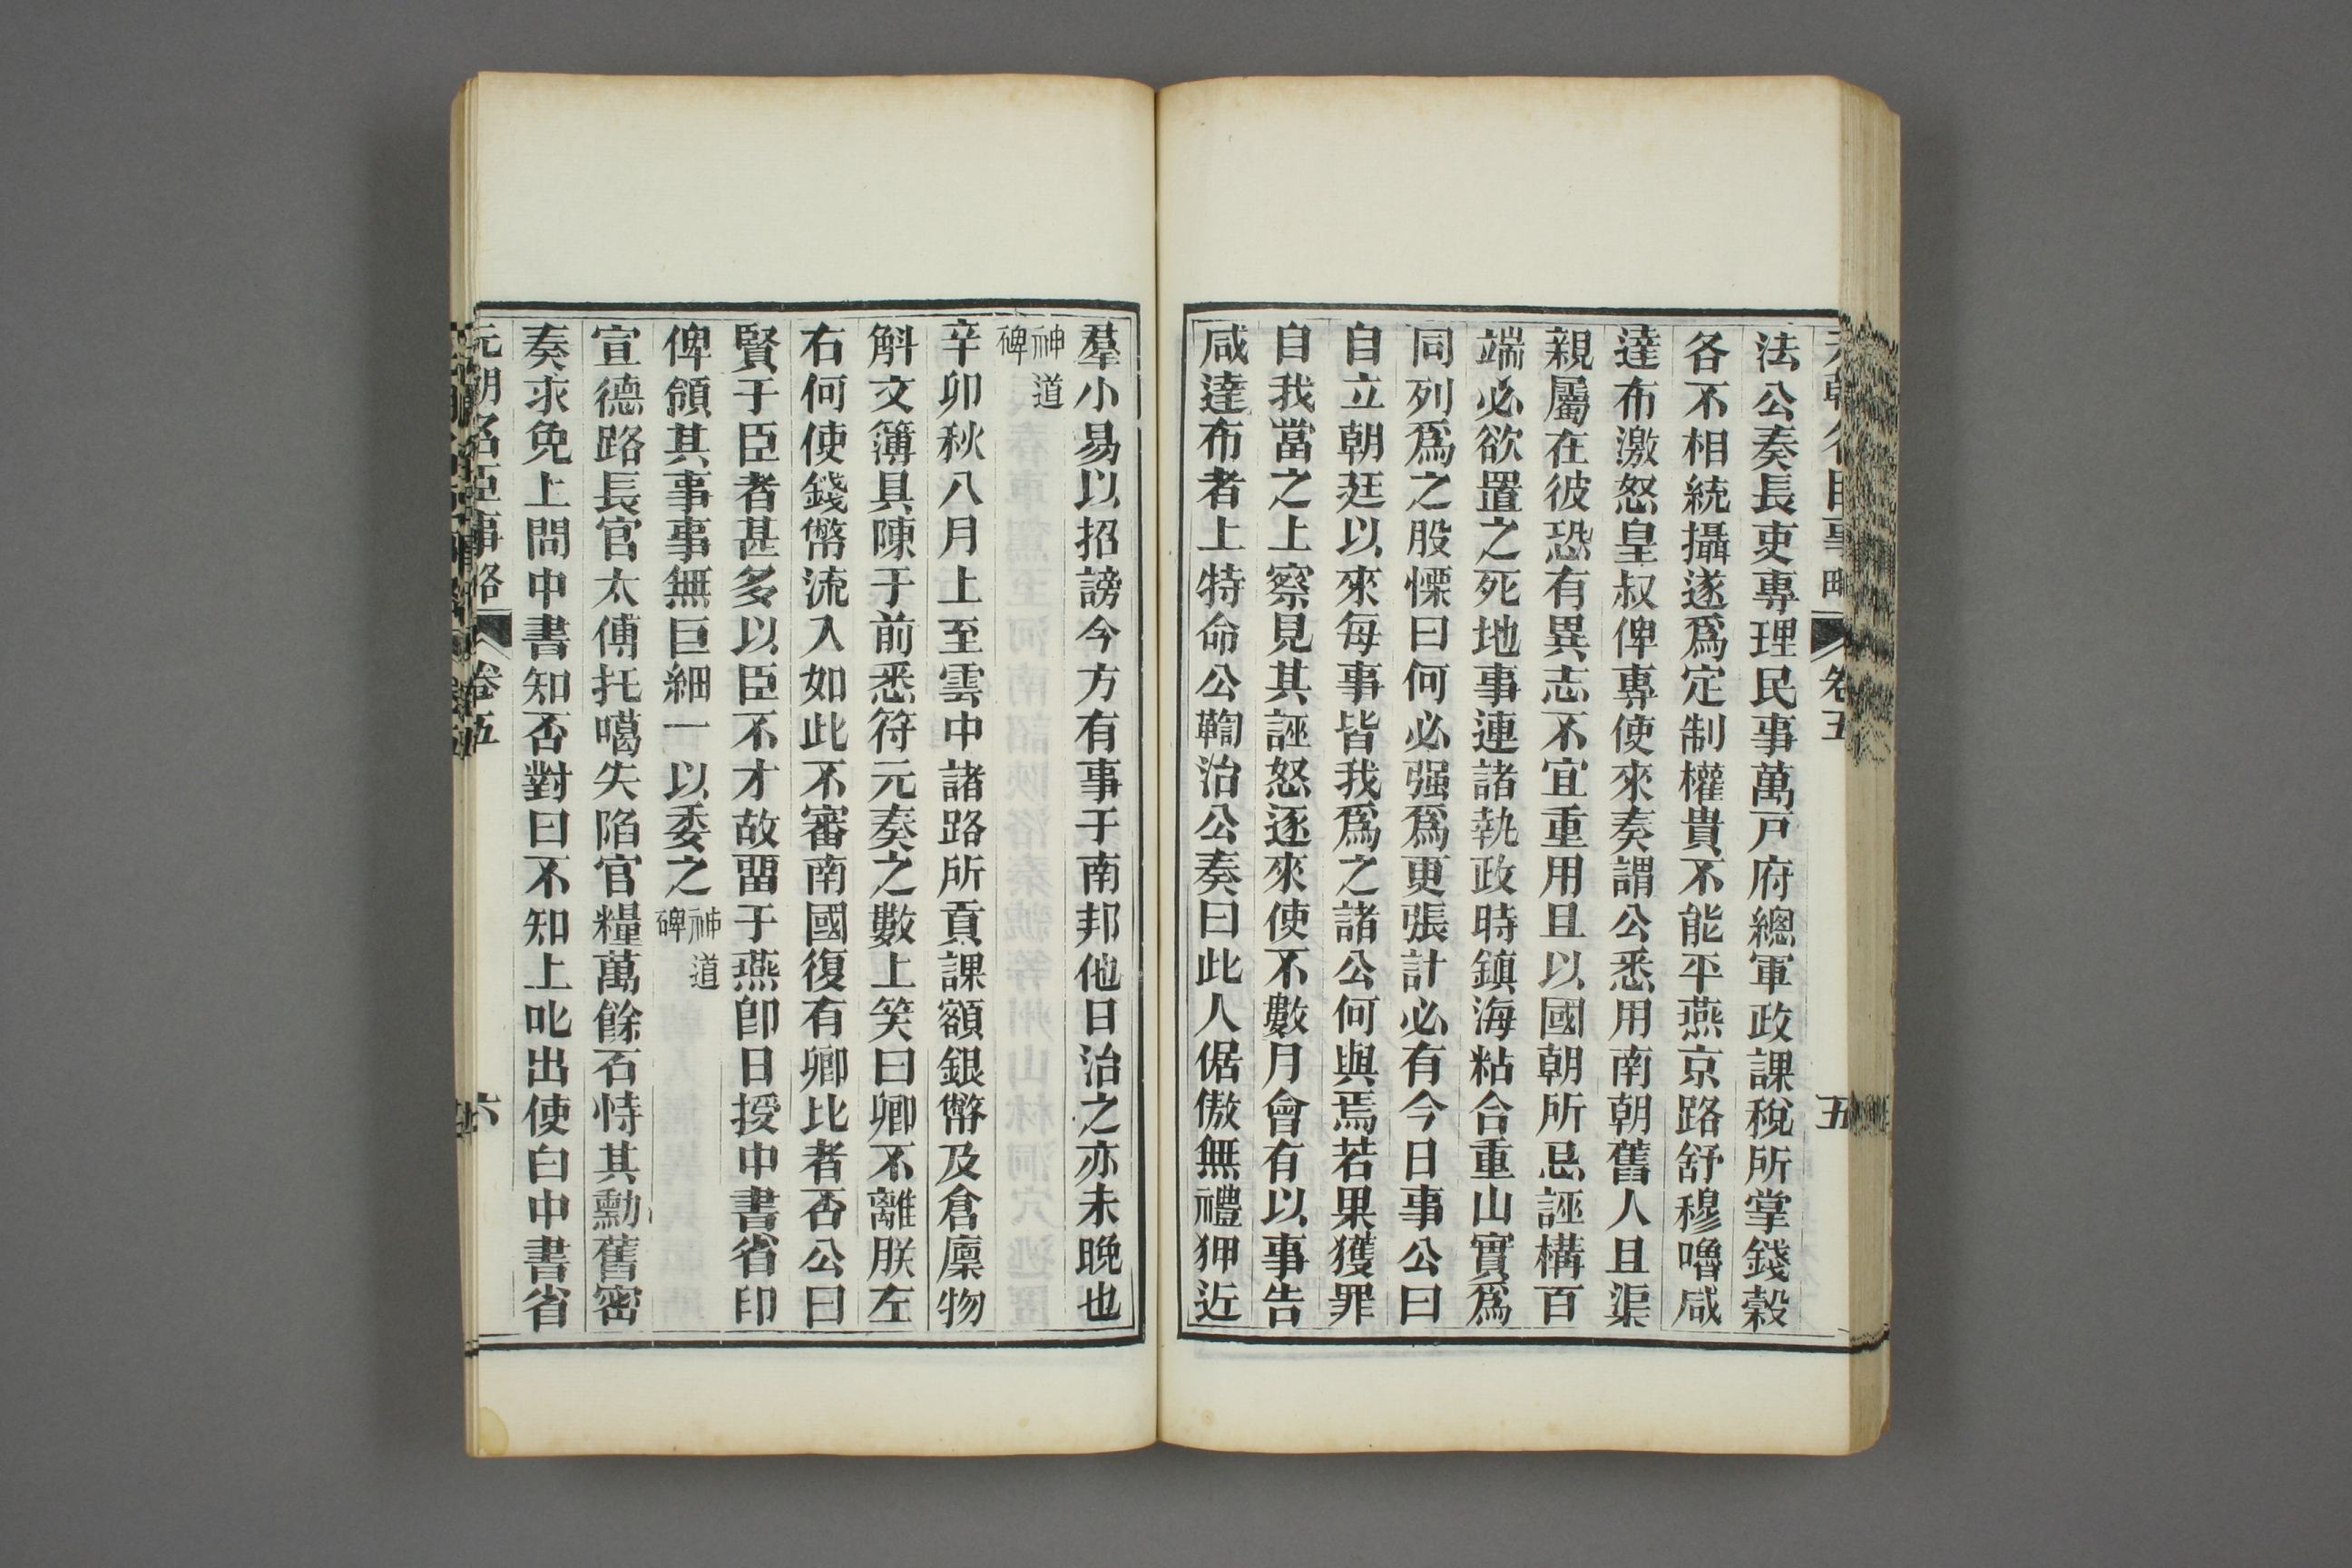 法公奏長吏專理民事萬戸府總軍政課稅所掌錢穀
各不相統攝遂爲定制權貴不能平燕京路舒穆嚕咸
達布激怒皇叔俾專使來奏謂公悉用南朝舊人且渠
親屬在彼恐有異志不宜重用且以國朝所忌誣構百
端必欲置之死地事連諸執政時鎮海粘合重山實爲
同列爲之股慄曰何必强爲更張計必有今日事公曰
自立朝廷以來每事皆我爲之諸公何與焉若果獲罪
自我當之上察見其誣怒逐來使不數月會有以事告
咸達布者上特命公鞫治公奏曰此人倨傲無禮狎近
羣小易以招謗今方有事于南邦他日治之亦未晚也
神道碑
辛卯秋八月上至雲中諸路所貢課額銀幣及倉廩物
斛文簿具陳于前悉符元奏之數上笑曰卿不離朕左
右何使錢幣流入如此不審南國復有卿比者否公曰
賢于臣者甚多以臣不才故畱于燕卽日授中書省印
俾領其事事無巨細一以委之神道碑
宣德路長官太傅托噶失陷官糧萬餘石恃其勳舊密
奏求免上問中書知否對曰不知上叱出使白中書省
元朝名臣事略 卷五 六